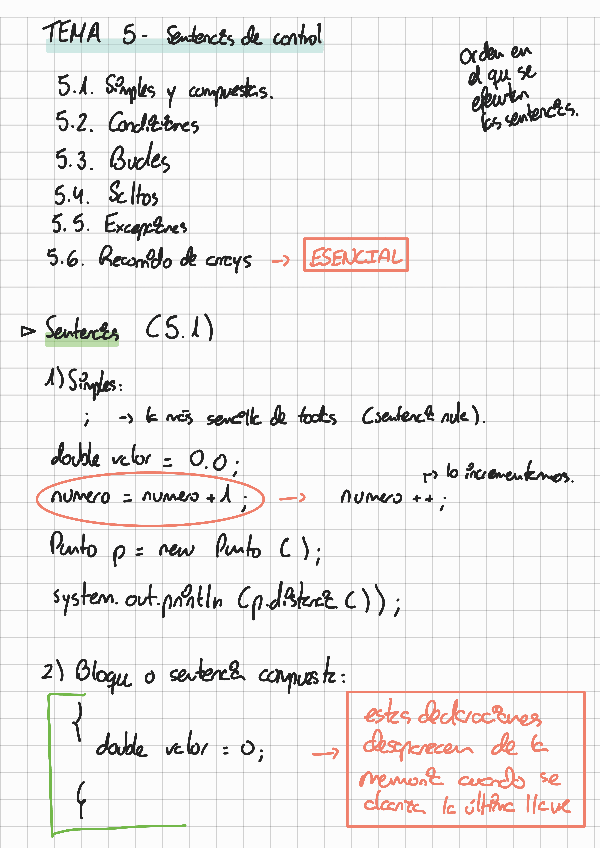 TEMA 5 - Sentencias de control
Orden en
el que se
ejecutan
las sentencias.
5.1. Simples y compuestas.
5.2. Condiciones
5.3. Bucles
5.4. Saltos
5.5. Excepciones
5.6. Recorrido de arrays → ESENCIAL
▷ Sentencias (5.1)
1) Simples:
; → la más sencilla de todas (sentencia nula).
double valor = 0.0;
↱ lo incrementamos.
numero = numero + 1; → numero ++;
Punto p = new Punto ( );
system.out.println (p.distancia ( ) ) ;
2) Bloque o sentencia compuesta:
{
double valor = 0; → estas declaraciones
desaparecen de la
memoria cuando se
alcanza la última llave
{